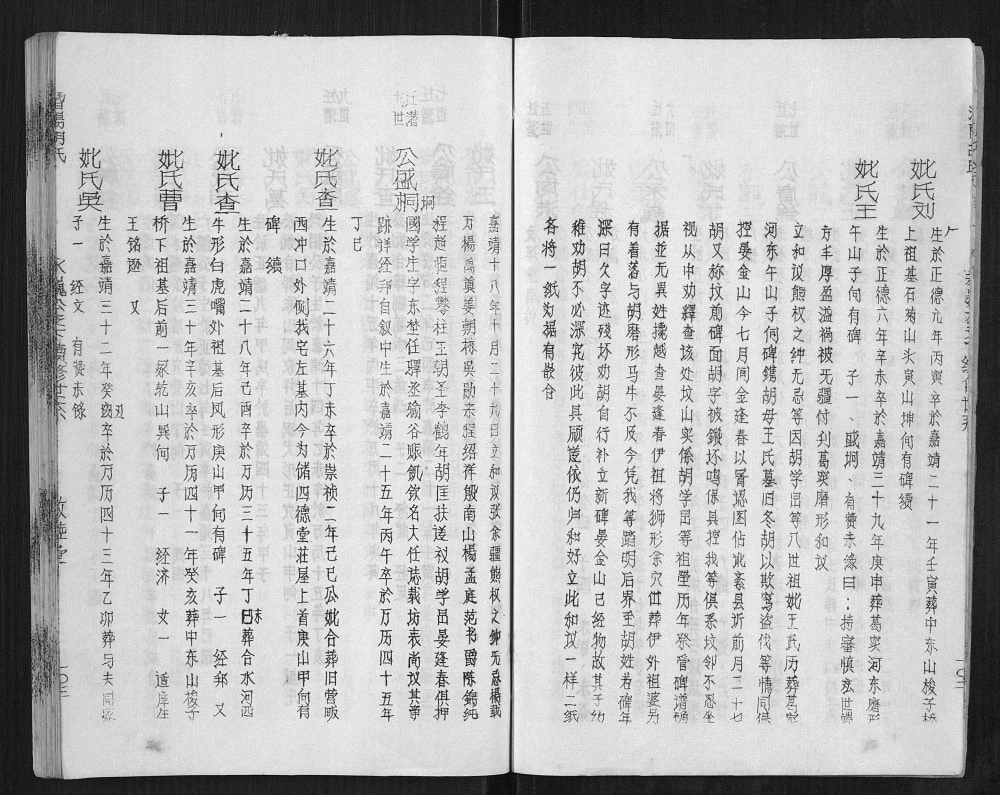 妣氏刘
生於正德元年丙寅卒於嘉靖二十一年壬寅葬中东山梭子桥
上祖基石菊山头寅山坤向有碑续
妣氏王
生於正德六年辛未卒於嘉靖三十九年庚申葬葛窦河东磨形
午山子向有碑 子一、盛垌、有赞赤涤曰:持審慎玄世
方丰厚盈溢祸被无疆付判葛窦磨形和议
立和议熊权之绅无忌等因胡学岊等八世祖妣王氏历葬葛
河东午山子向碑鐫胡母王氏墓旧冬胡以欺骂盗伐等情同俱
控晏金山今七月间金逢春以胥谎图佔訛紊县近前月二十七
胡又称坟前碑面胡字被鏃坏鳴保具控我等俱系坟邻不忍坐
视从中劝释查该处坟山实係胡学岊等祖塋历年祭管碑谱
据並无異姓攙越查晏逢春伊祖将狮形佘穴出葬伊外祖婆
有着落与胡磨形马牛不及今凭我等踏明后界至胡姓若碑年
深日久字迹残坏劝胡自行补立新碑晏金山已经物故其子幼
稚劝胡不必深究彼此具願遂依仍归和好立此和议一样二纸
各将一纸为据有嵌合
嘉靖十八年十月二十九日立和议张余疆熊权之绅无忌楊载
万楊禹奠姜朝栋吳勋亲程绍祥殷南山楊孟庭范书爵陈錦纯
程超恒程攀柱王朝圣李鹤年胡匡扶送议胡学岊晏逢春俱押
近潽
九世
公盛垌
国学生字东埜任驛丞输谷賑飢欽名大任誌载坊表尚议其事
跡詳经邦自叙中生於嘉靖二十五年丙午卒於万历四十五年
丁巳
妣氏查
生於嘉靖二十六年丁未卒於崇祯二年己巳公妣合葬旧营畈
西冲口外侧我宅左基内今为储四德堂莊屋上首庚山甲向有
碑 續
妣氏查
生於嘉靖二十八年己酉卒於万历三十五年丁未葬合水河西
牛形白虎嘴外祖基后风形庚山甲向有碑 子一 经邦 又
妣氏曹
生於嘉靖三十年辛亥卒於万历四十一年癸亥葬中东山梭子
桥下祖基后前一冢乾山巽向 子一 经济 女一 適庠生
王铭逦 又
妣氏吳
生於嘉靖三十二年癸丑卒於万历四十三年乙卯葬与夫同冢
子一 经文 有赞赤錄